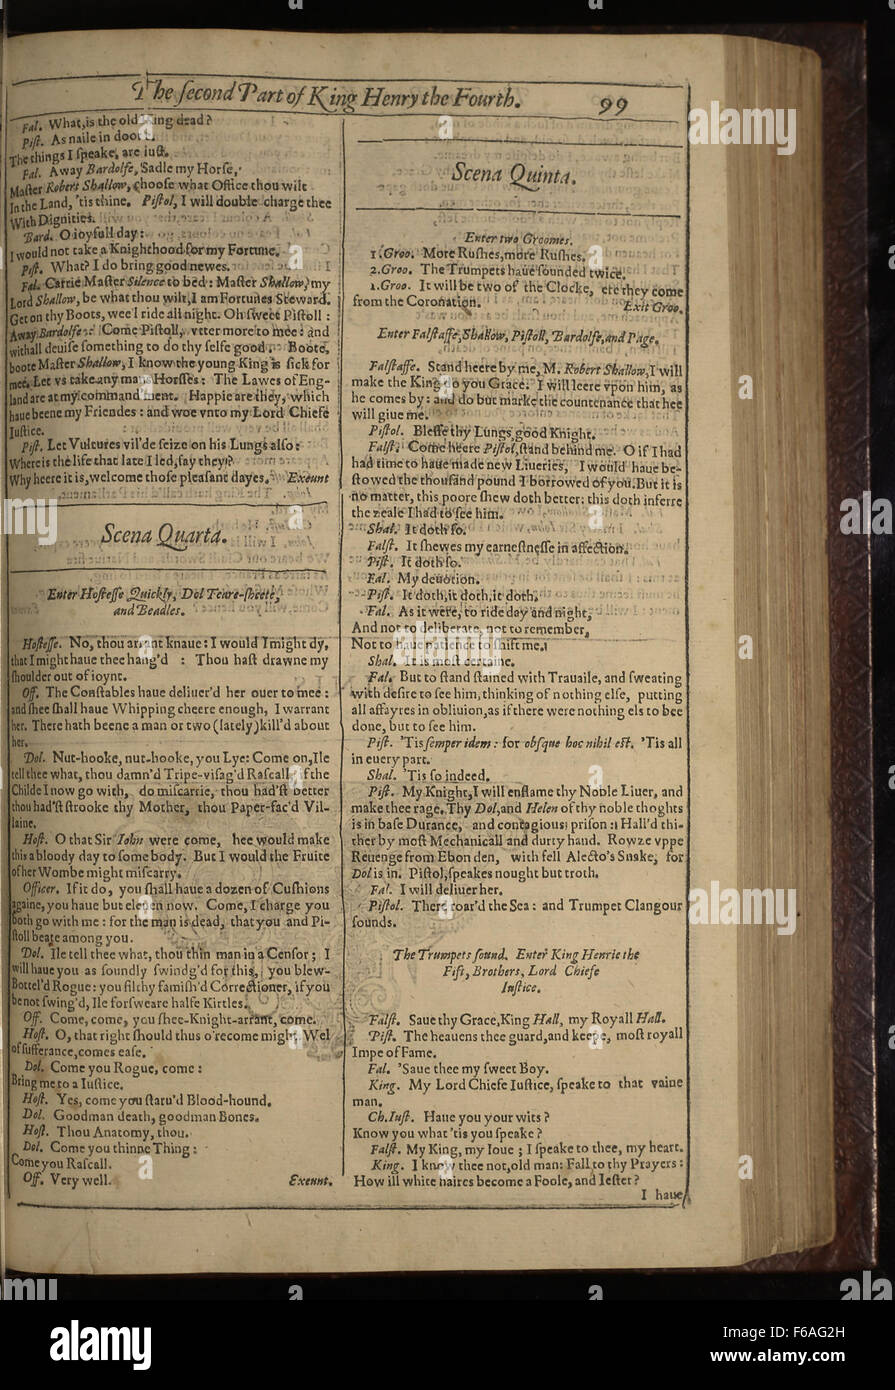 The ſecond Part of King Henry the Fourth. 99
Fal. What, is the old King dead?
Piſt. As naile in doore.
The things I ſpeake, are iuſt.
Fal. Away Bardolfe, Sadle my Horſe,
Maſter Robert Shallow, chooſe what Office thou wilt
In the Land, 'tis thine. Piſtol, I will double charge thee
With Dignities.
Bard. O ioyfull day:
I would not take a Knighthood for my Fortune.
Piſt. What? I do bring good newes.
Fal. Carrie Maſter Silence to bed: Maſter Shallow, my
Lord Shallow, be what thou wilt, I am Fortunes Steward.
Get on thy Boots, wee'l ride all night. Oh ſweet Piſtoll:
Away Bardolfe: Come Piſtoll, vtter more to mee: and
withall deuiſe ſomething to do thy ſelfe good. Boote,
boote Maſter Shallow, I know the young King is ſick for
mee. Let vs take any mans Horſſes: The Lawes of Eng-
land are at my command'ment. Happie are they, which
haue beene my Friendes: and woe vnto my Lord Chiefe
Iuſtice.
Piſt. Let Vultures vil'de ſeize on his Lungs alſo:
Where is the life that late I led, ſay they?
Why heere it is, welcome thoſe pleaſant dayes. Exeunt
Scena Quarta.
Enter Hoſteſſe Quickly, Dol Teare-ſheete,
and Beadles.
Hoſteſſe. No, thou arrant knaue: I would I might dy,
that I might haue thee hang'd : Thou haſt drawne my
ſhoulder out of ioynt.
Off. The Conſtables haue deliuer'd her ouer to mee:
and ſhee ſhall haue Whipping cheere enough, I warrant
her. There hath beene a man or two (lately) kill'd about
her.
Dol. Nut-hooke, nut-hooke, you Lye: Come on, Ile
tell thee what, thou damn'd Tripe-viſag'd Raſcall, if the
Childe I now go with, do miſcarrie, thou had'ſt better
thou had'ſt ſtrooke thy Mother, thou Paper-fac'd Vil-
laine.
Hoſt. O that Sir Iohn were come, hee would make
this a bloody day to ſome body. But I would the Fruite
of her Wombe might miſcarry.
Officer. If it do, you ſhall haue a dozen of Cuſhions
againe, you haue but eleuen now. Come, I charge you
both go with me: for the man is dead, that you and Pi-
ſtoll beate among you.
Dol. Ile tell thee what, thou thin man in a Cenſor; I
will haue you as ſoundly ſwindg'd for this, you blew-
Bottel'd Rogue: you filthy famiſh'd Correctioner, if you
be not ſwing'd, Ile forſweare halfe Kirtles.
Off. Come, come, you ſhee-Knight-arrant, come.
Hoſt. O, that right ſhould thus o'recome might. Wel
of ſufferance, comes eaſe.
Dol. Come you Rogue, come:
Bring me to a Iuſtice.
Hoſt. Yes, come you ſtaru'd Blood-hound.
Dol. Goodman death, goodman Bones.
Hoſt. Thou Anatomy, thou.
Dol. Come you thinne Thing:
Come you Raſcall.
Off. Very well. Exeunt.
Scena Quinta.
Enter two Groomes.
1.Groo. More Ruſhes, more Ruſhes.
2.Groo. The Trumpets haue ſounded twice.
1.Groo. It will be two of the Clocke, ere they come
from the Coronation. Exit Groo.
Enter Falſtaffe, Shallow, Piſtoll, Bardolfe, and Page.
Falſtaffe. Stand heere by me, M. Robert Shallow, I will
make the King do you Grace. I will leere vpon him, as
he comes by: and do but marke the countenance that hee
will giue me.
Piſtol. Bleſſe thy Lungs, good Knight.
Falſt. Come heere Piſtol, ſtand behind me. O if I had
had time to haue made new Liueries, I would haue be-
ſtowed the thouſand pound I borrowed of you. But it is
no matter, this poore ſhew doth better: this doth inferre
the zeale I had to ſee him.
Shal. It doth ſo.
Falſt. It ſhewes my earneſtneſſe in affection.
Piſt. It doth ſo.
Fal. My deuotion.
Piſt. It doth, it doth, it doth.
Fal. As it were, to ride day and night,
And not to deliberate, not to remember,
Not to haue patience to ſhift me.
Shal. It is moſt certaine.
Fal. But to ſtand ſtained with Trauaile, and ſweating
with deſire to ſee him, thinking of nothing elſe, putting
all affayres in obliuion, as if there were nothing els to bee
done, but to ſee him.
Piſt. 'Tis ſemper idem: for obſque hoc nihil eſt. 'Tis all
in euery part.
Shal. 'Tis ſo indeed.
Piſt. My Knight, I will enflame thy Noble Liuer, and
make thee rage. Thy Dol, and Helen of thy noble thoghts
is in baſe Durance, and contagious priſon: Hall'd thi-
ther by moſt Mechanicall and durty hand. Rowze vppe
Reuenge from Ebon den, with fell Alecto's Snake, for
Dol is in. Piſtol, ſpeakes nought but troth.
Fal. I will deliuer her.
Piſtol. There roar'd the Sea: and Trumpet Clangour
ſounds.
The Trumpets ſound. Enter King Henrie the
Fift, Brothers, Lord Chiefe
Iuſtice.
Falſt. Saue thy Grace, King Hall, my Royall Hall.
Piſt. The heauens thee guard, and keepe, moſt royall
Impe of Fame.
Fal. 'Saue thee my ſweet Boy.
King. My Lord Chiefe Iuſtice, ſpeake to that vaine
man.
Ch.Iuſt. Haue you your wits?
Know you what 'tis you ſpeake?
Falſt. My King, my Ioue; I ſpeake to thee, my heart.
King. I know thee not, old man: Fall to thy Prayers:
How ill white haires become a Foole, and Ieſter?
I haue
alamy
Image ID: F6AG2H
www.alamy.com